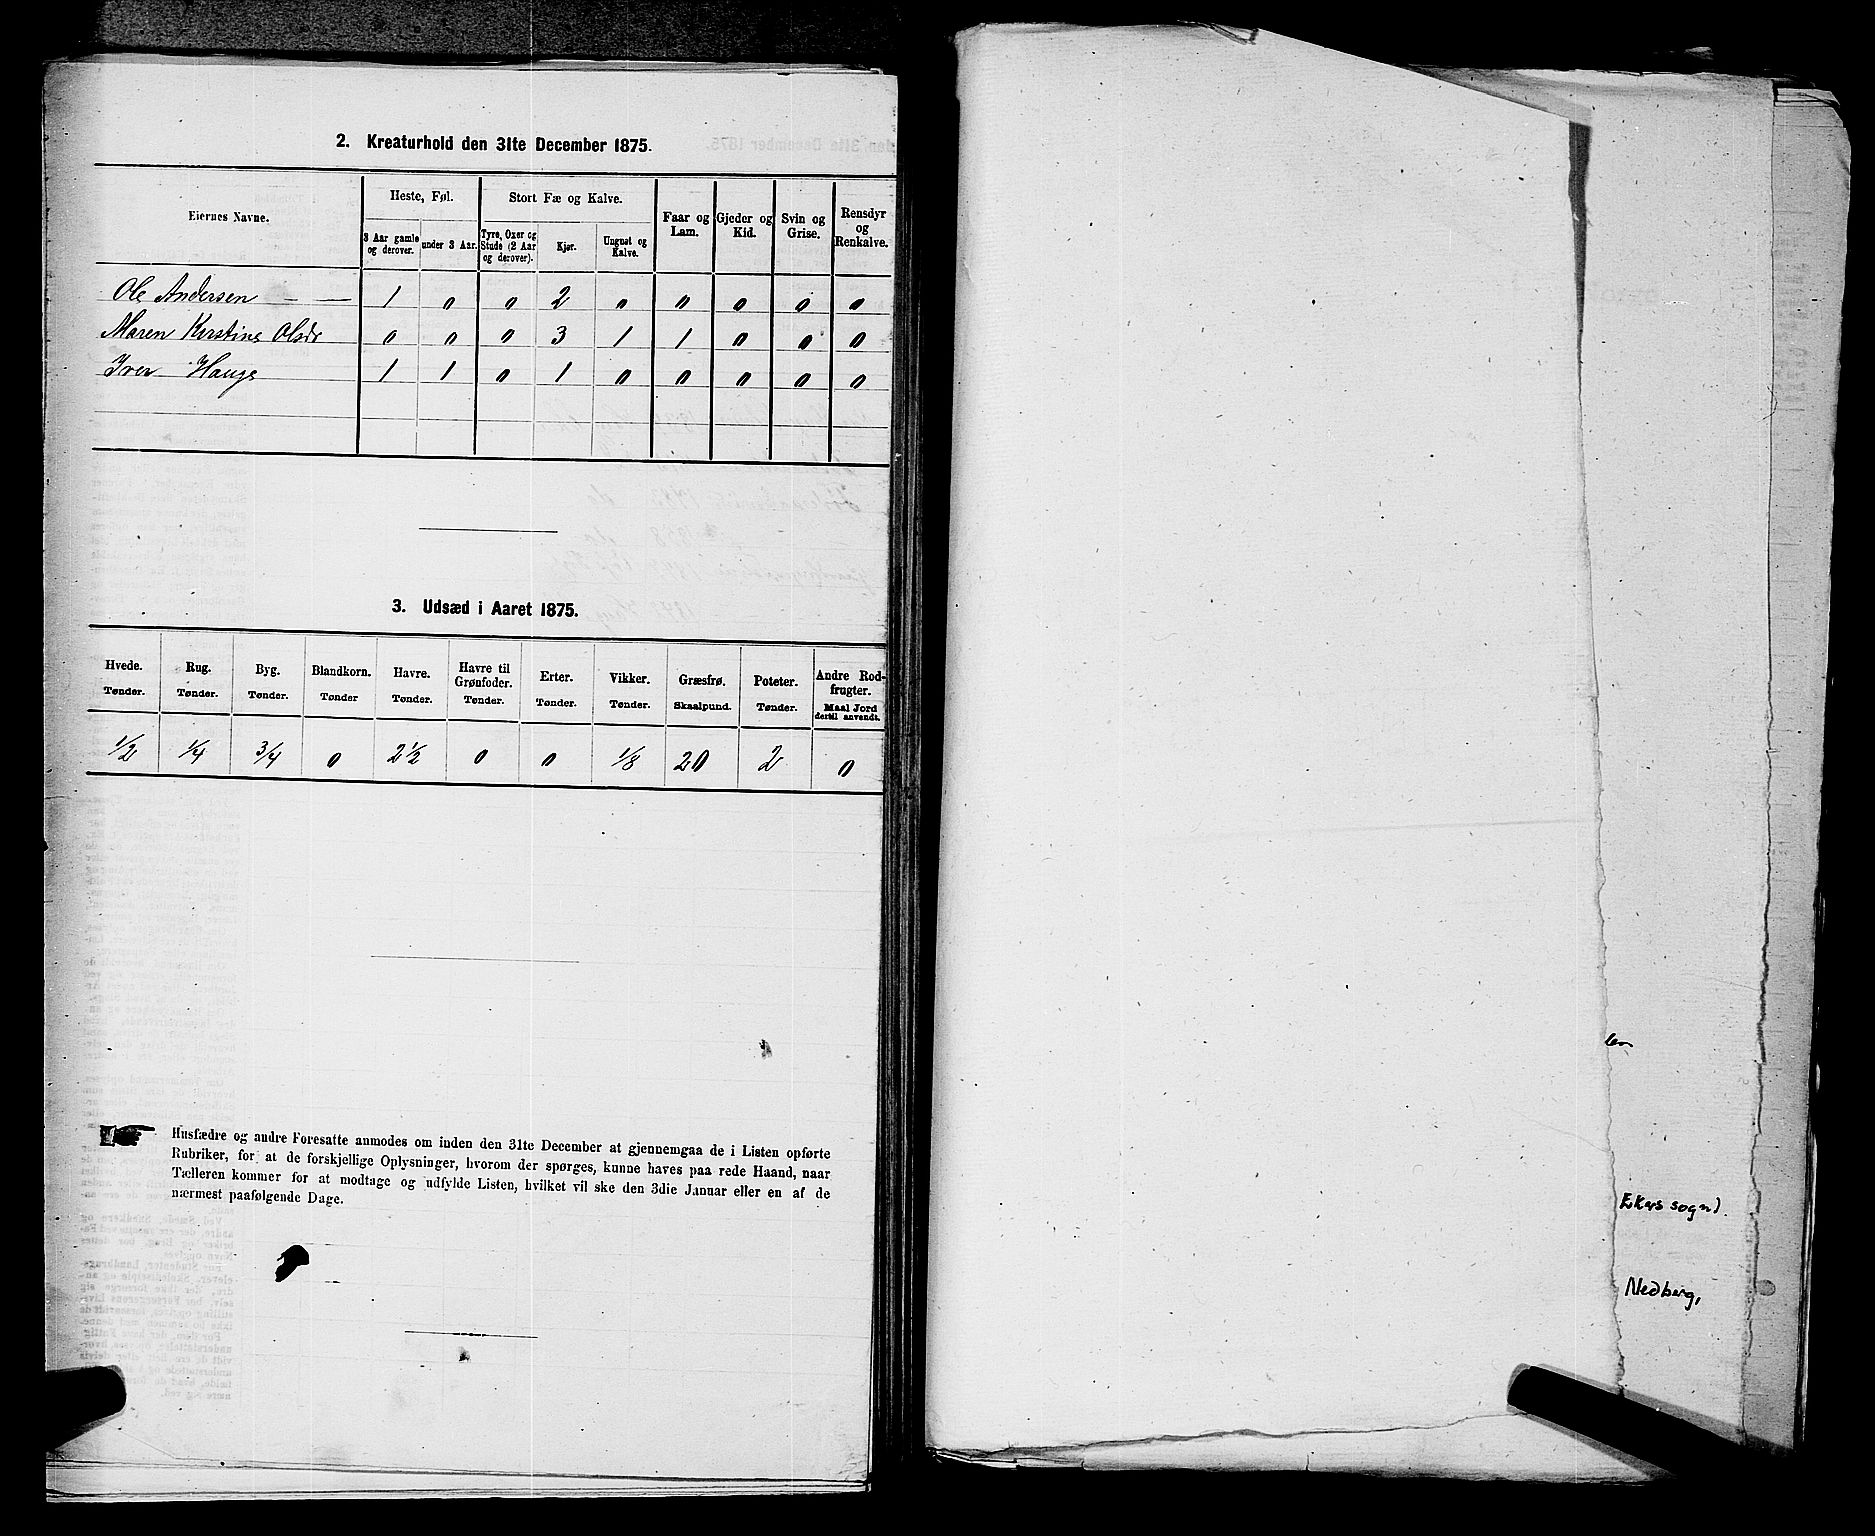 2. Kreaturhold den 31te December 1875.
Eiernes Navne. Heste, Føl. Stort Fæ og Kalve. Faar og Lam. Gjeder og Kid. Svin og Grise. Rensdyr og Renkalve.
3 Aar gamle og derover. under 3 Aar. Tyre, Oxer og Stude (2 Aar og derover). Kjør. Ungnøt og Kalve.
Ole Andersen — — 1 0 0 2 0 0 0 0 0
Maren Kirstine Olsdr 0 0 0 3 1 1 0 0 0
Iver Hauge 1 1 0 1 0 0 0 0 0
3. Udsæd i Aaret 1875.
Hvede. Rug. Byg. Blandkorn. Havre. Havre til Grønfoder. Erter. Vikker. Græsfrø. Poteter. Andre Rodfrugter.
Tønder. Tønder. Tønder. Tønder Tønder. Tønder. Tønder. Tønder. Skaalpund. Tønder. Maal Jord dertil anvendt.
1/2 1/4 3/4 0 2 1/2 0 0 1/8 20 2 0
Husfædre og andre Foresatte anmodes om inden den 31te December at gjennemgaa de i Listen opførte
Rubriker, for at de forskjellige Oplysninger, hvorom der spørges, kunne haves paa rede Haand, naar
Tælleren kommer for at modtage og udfylde Listen, hvilket vil ske den 3die Januar eller en af de
nærmest paafølgende Dage.
Ekers sogn).
Nedberg,